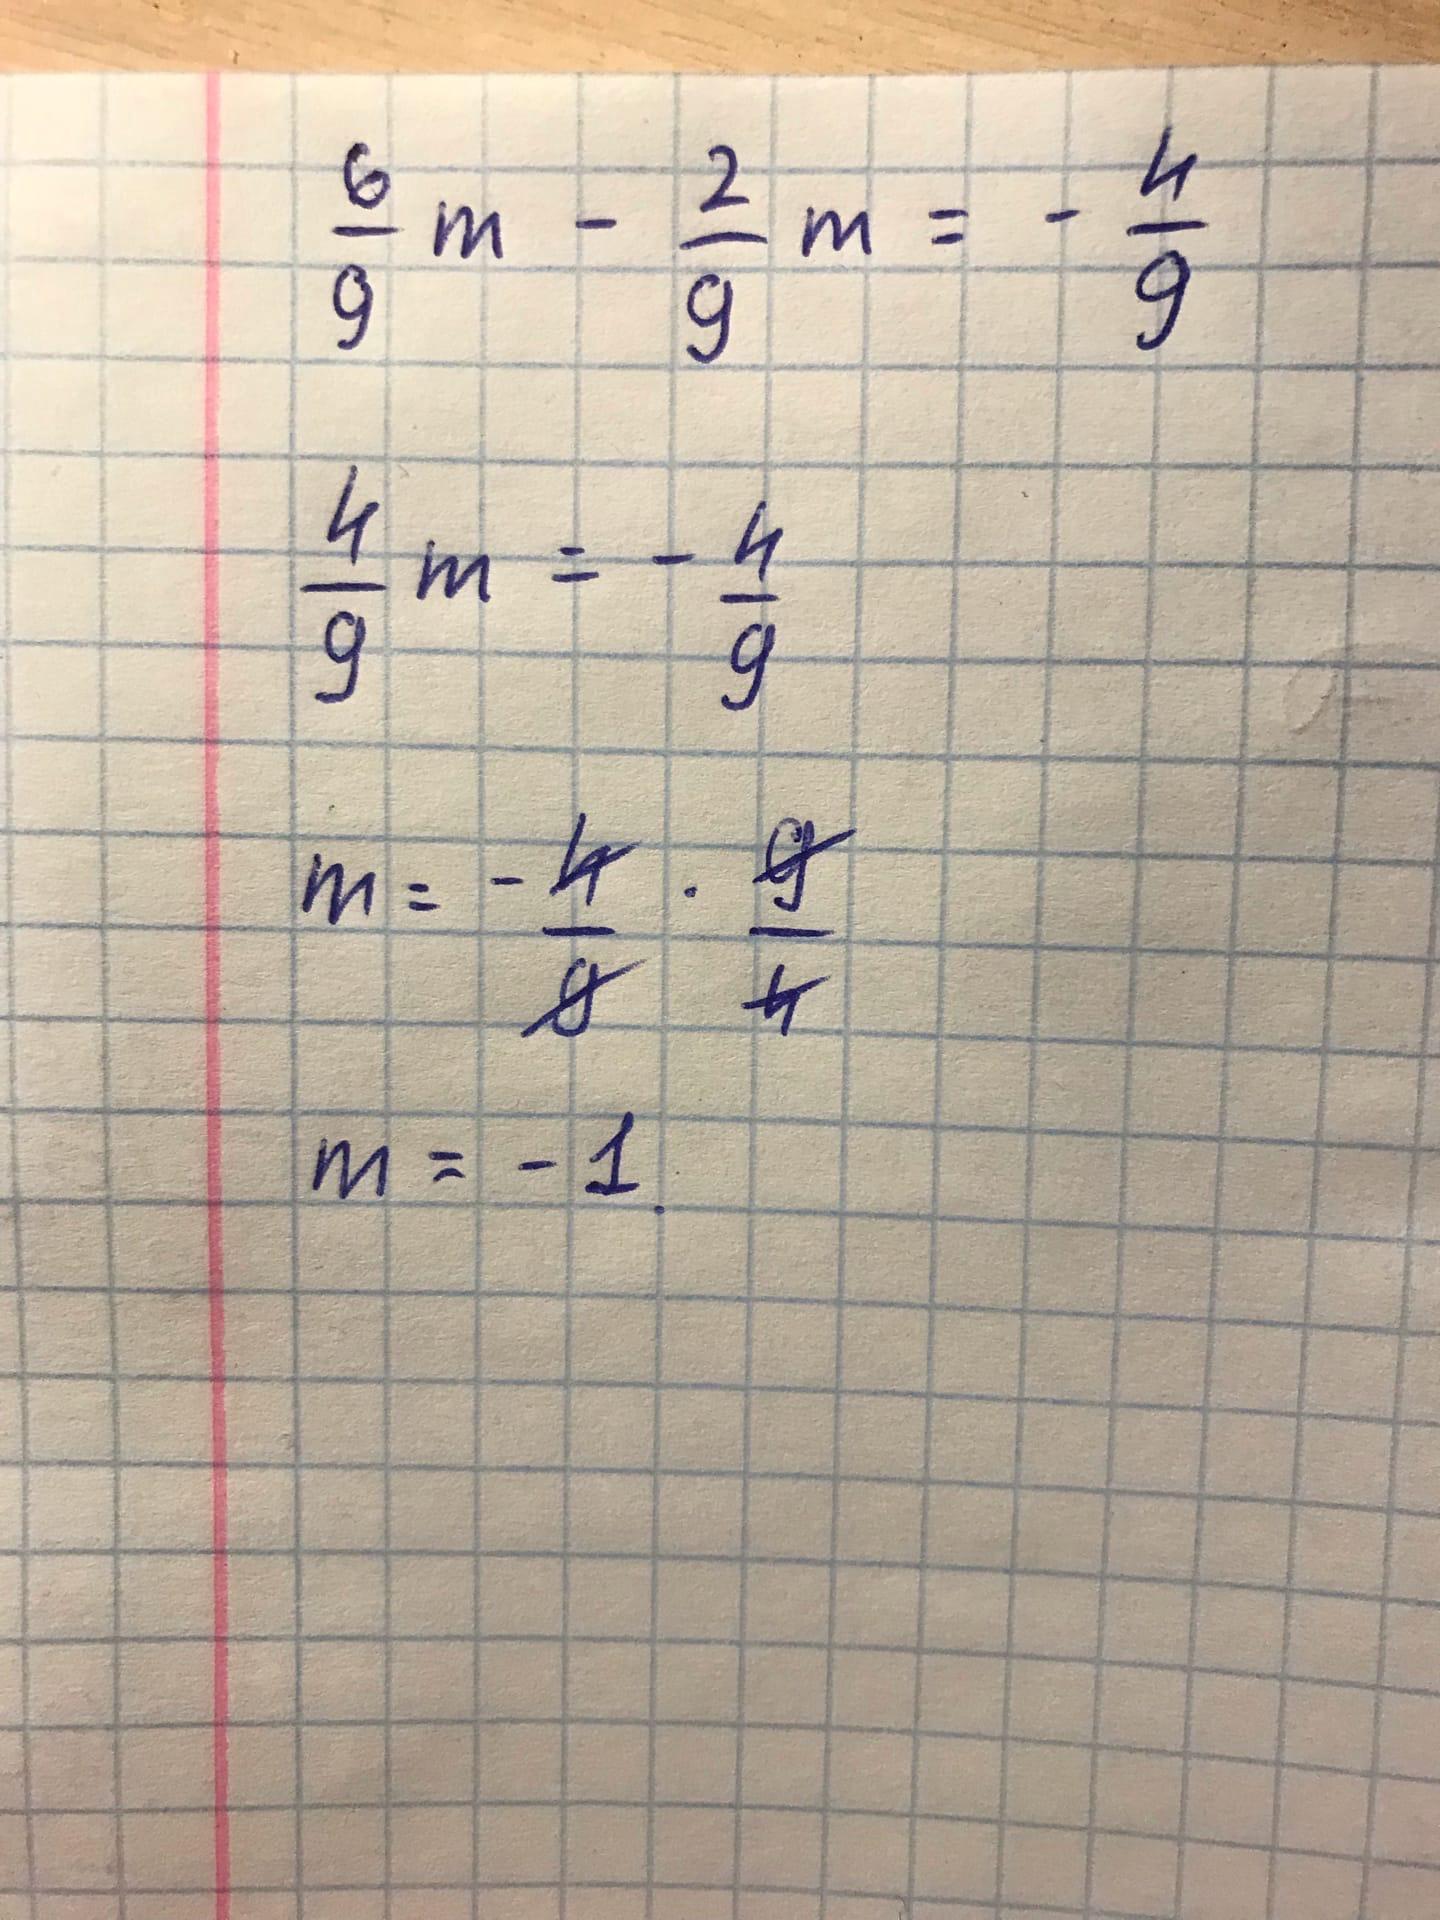 6/9 m - 2/9 m = - 4/9
4/9 m = - 4/9
m = - 4/9 · 9/4
m = - 1.